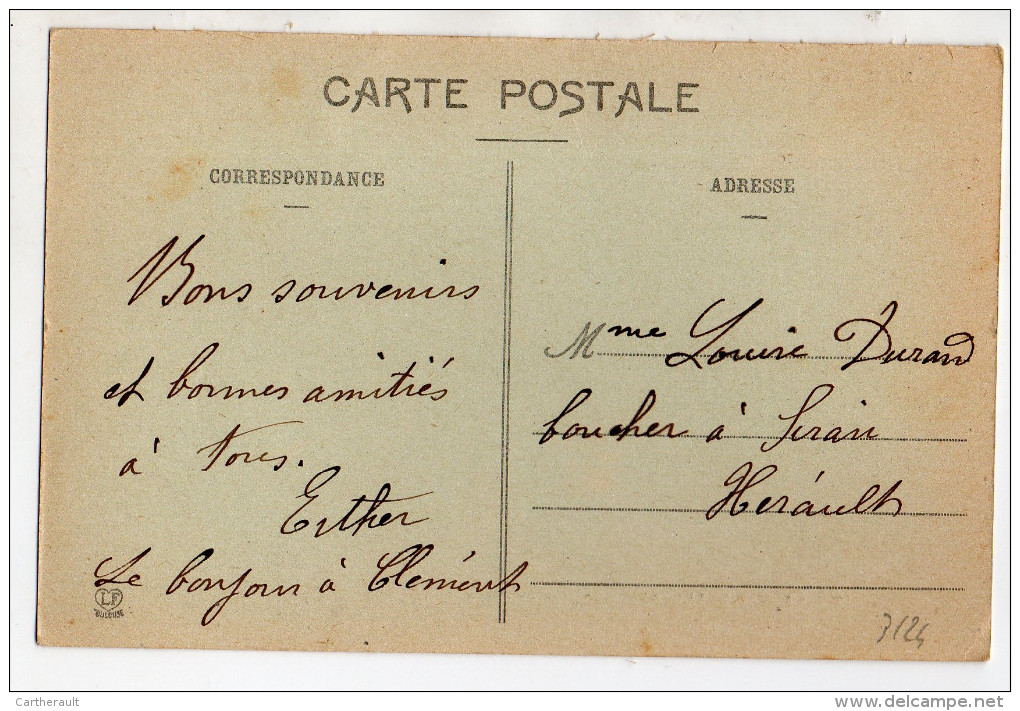 CARTE POSTALE
CORRESPONDANCE
ADRESSE
Bons souvenirs
et bonnes amitiés
à tous.
Esther
Le bonjour à Clément
Mme Louise Durand
boucher à Siran
Hérault
LF
TOULOUSE
3124
Cartherault
www.delcampe.net